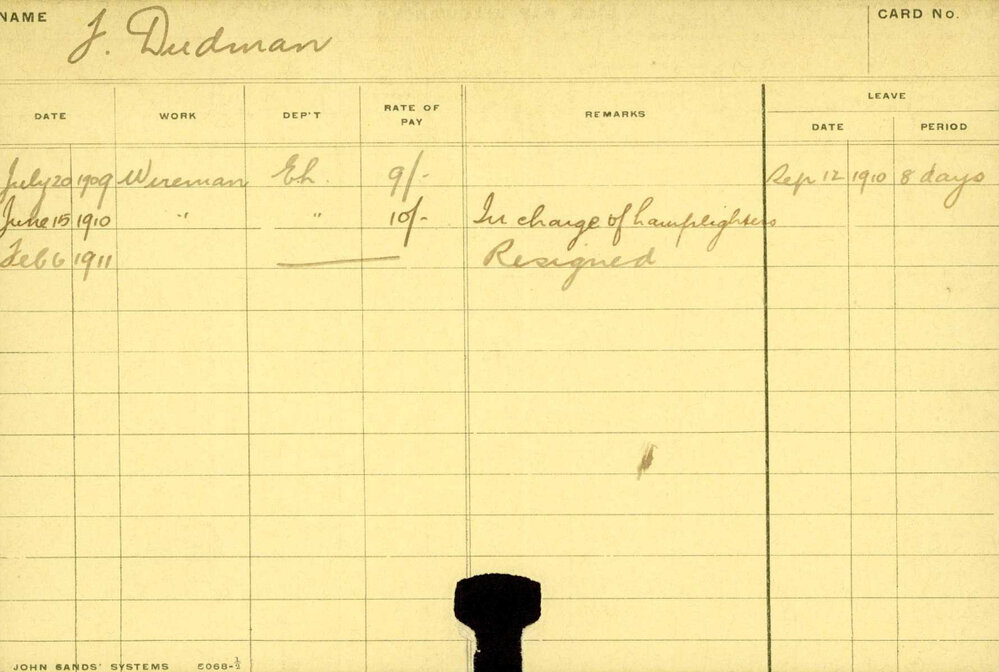 NAME J. Dudman CARD No.
LEAVE
DATE WORK DEP'T RATE OF PAY REMARKS DATE PERIOD
July 20 1909 Wireman 9/- Sep 12 1910 8 days
June 15 1910 " " 10/- In charge of Lamplighters
Feb 6 1911 Resigned
JOHN SANDS' SYSTEMS 5068-½